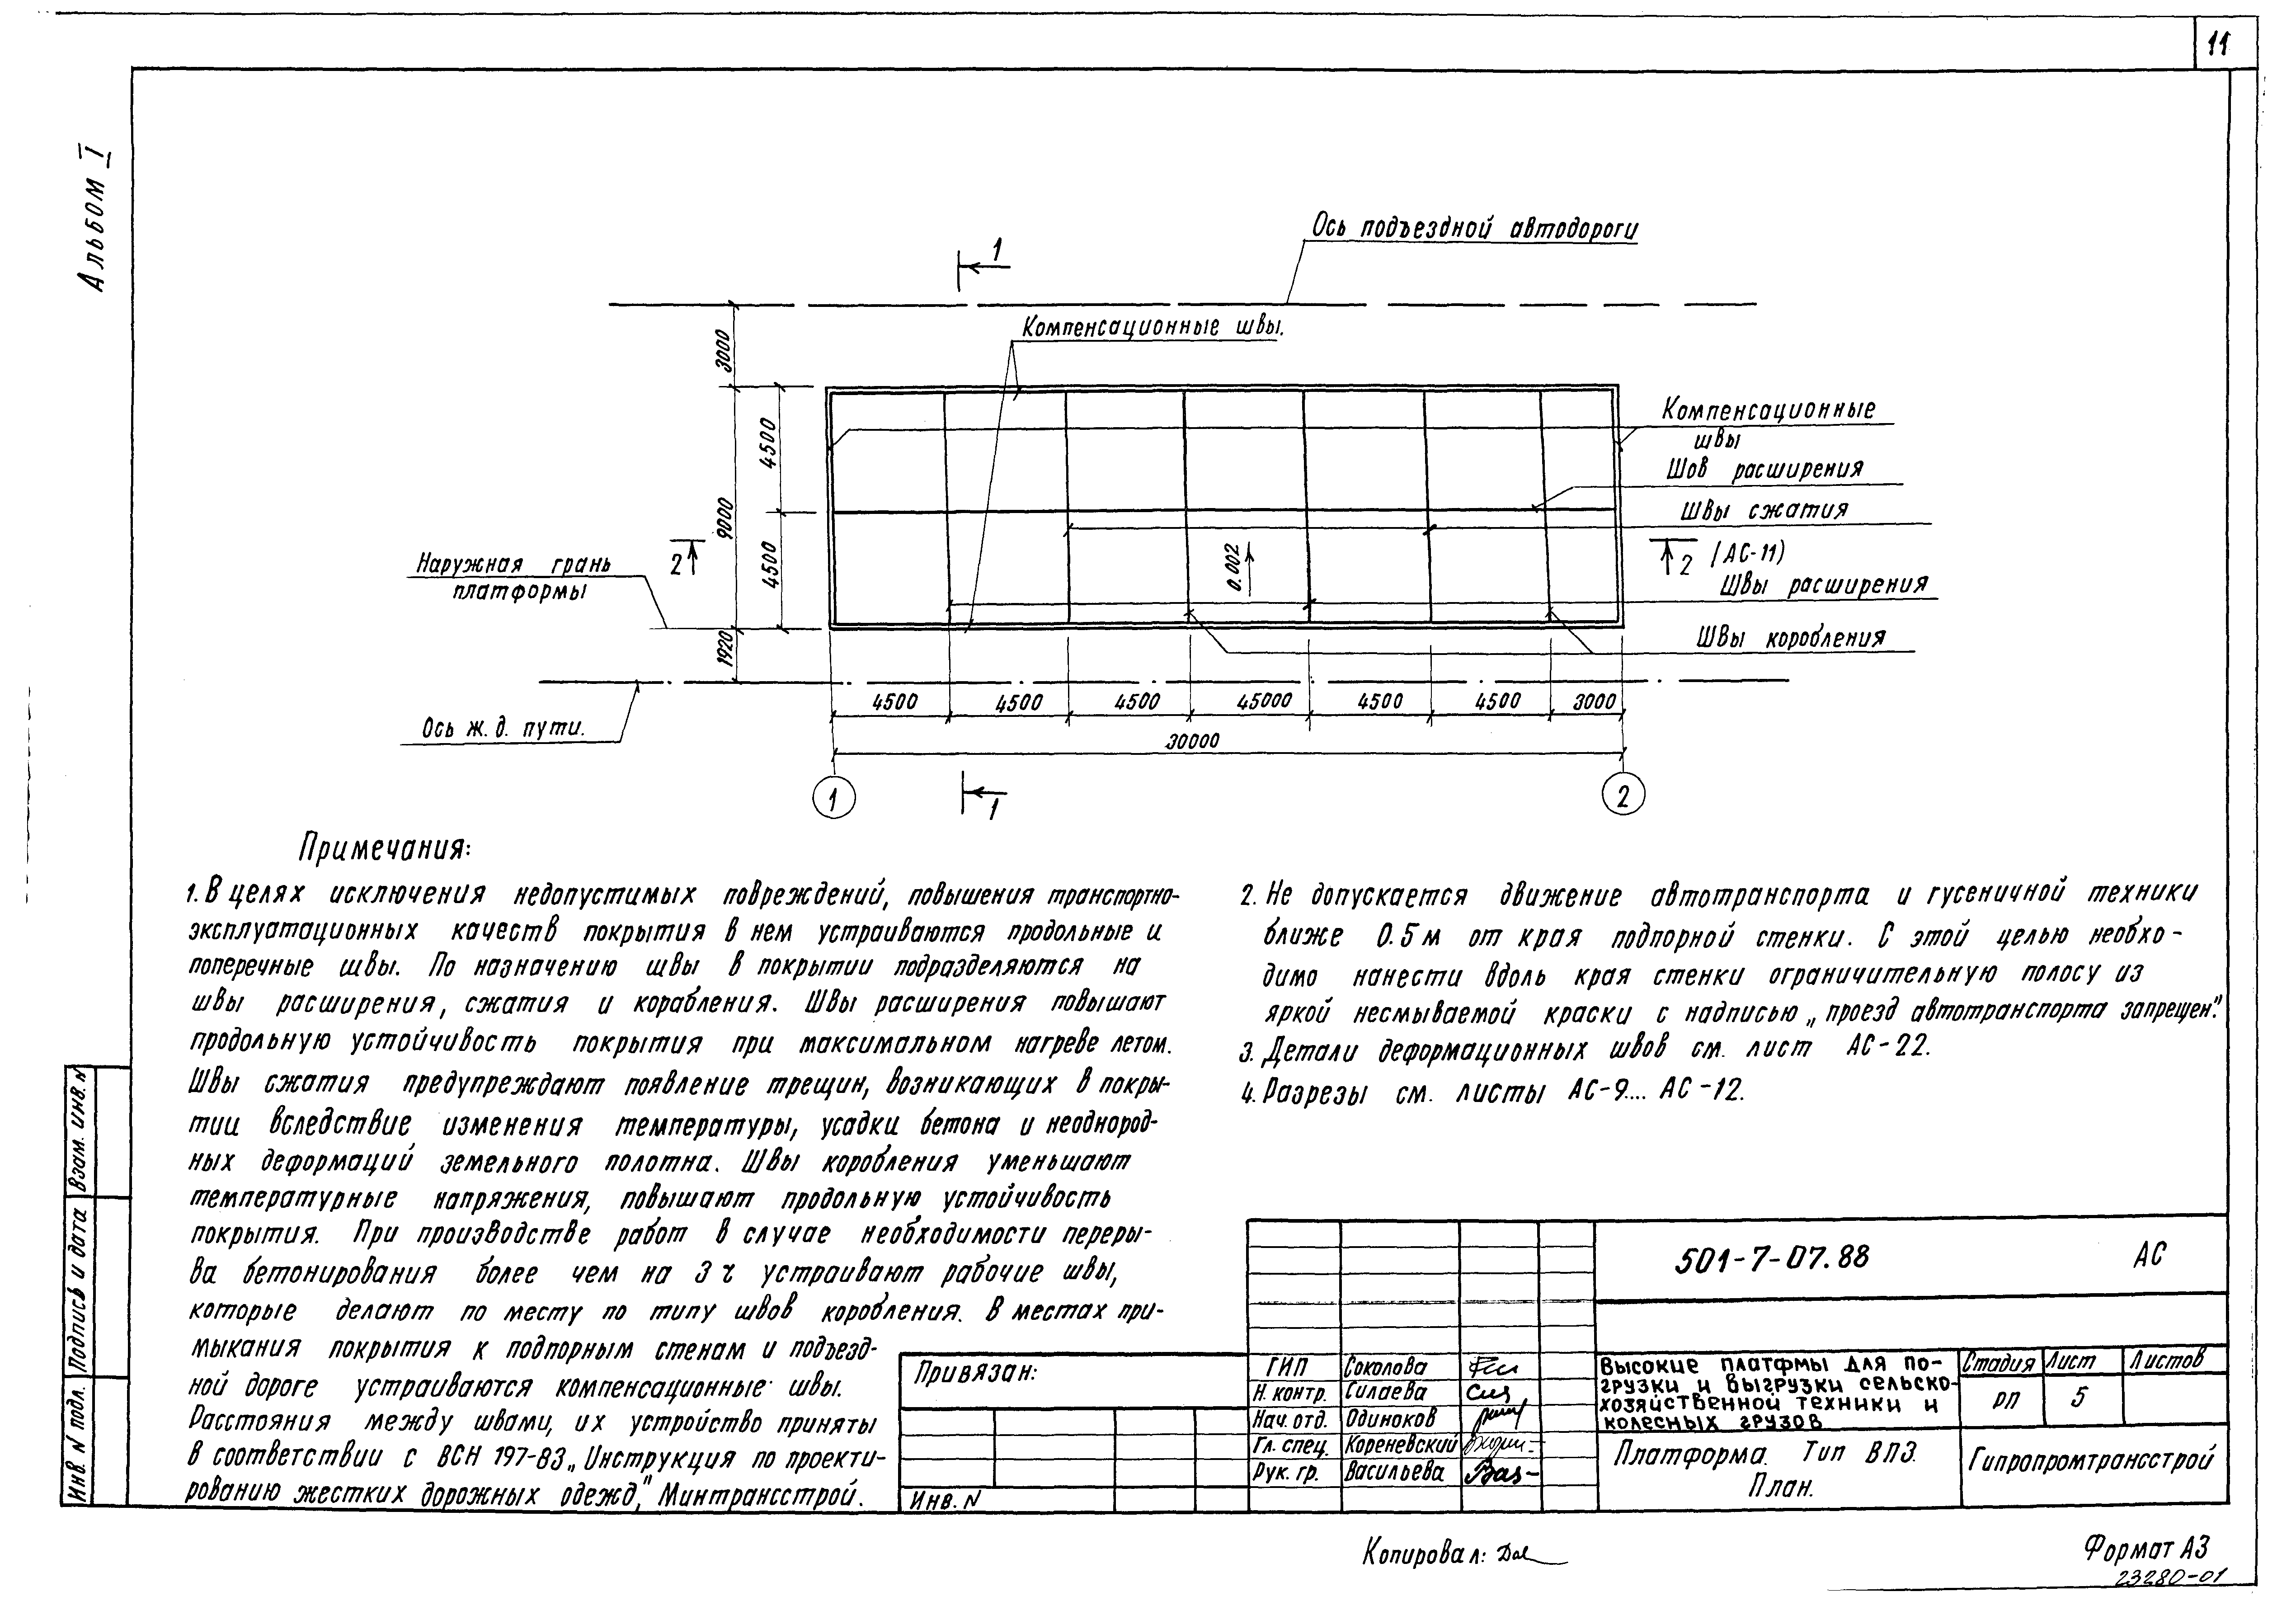 11
Альбом I
Ось подъездной автодороги
1
Компенсационные швы.
3000
9000
4500
4500
1920
Компенсационные
швы
Шов расширения
Швы сжатия
2
2 (АС-11)
0.002
Наружная грань
платформы
Швы расширения
Швы коробления
4500 4500 4500 45000 4500 4500 3000
Ось ж.д. пути.
30000
1
2
1
Примечания:
1. В целях исключения недопустимых повреждений, повышения транспортно-
эксплуатационных качеств покрытия в нем устраиваются продольные и
поперечные швы. По назначению швы в покрытии подразделяются на
швы расширения, сжатия и корабления. Швы расширения повышают
продольную устойчивость покрытия при максимальном нагреве летом.
Швы сжатия предупреждают появление трещин, возникающих в покры-
тии вследствие изменения температуры, усадки бетона и неоднород-
ных деформаций земельного полотна. Швы коробления уменьшают
температурные напряжения, повышают продольную устойчивость
покрытия. При производстве работ в случае необходимости переры-
ва бетонирования более чем на 3 ч устраивают рабочие швы,
которые делают по месту по типу швов коробления. В местах при-
мыкания покрытия к подпорным стенам и подъезд-
ной дороге устраиваются компенсационные швы.
Расстояния между швами, их устройство приняты
в соответствии с ВСН 197-83 „Инструкция по проекти-
рованию жестких дорожных одежд," Минтрансстрой.
2. Не допускается движение автотранспорта и гусеничной техники
ближе 0.5 м от края подпорной стенки. С этой целью необхо-
димо нанести вдоль края стенки ограничительную полосу из
яркой несмываемой краски с надписью „проезд автотранспорта запрещен".
3. Детали деформационных швов см. лист АС-22.
4. Разрезы см. листы АС-9.... АС-12.
Взам. инв. N
Подпись и дата
Инв. N подл.
Привязан:
Инв. N
ГИП Соколова
Н. контр. Силаева
Нач. отд. Одиноков
Гл. спец. Кореневский
Рук. гр. Васильева
501-7-07.88 АС
Высокие платфмы для по-
грузки и выгрузки сельско-
хозяйственной техники и
колесных грузов
Стадия Лист Листов
РП 5
Платформа. Тип ВПЗ.
План.
Гипропромтрансстрой
Копировал:
Формат А3
23280-01